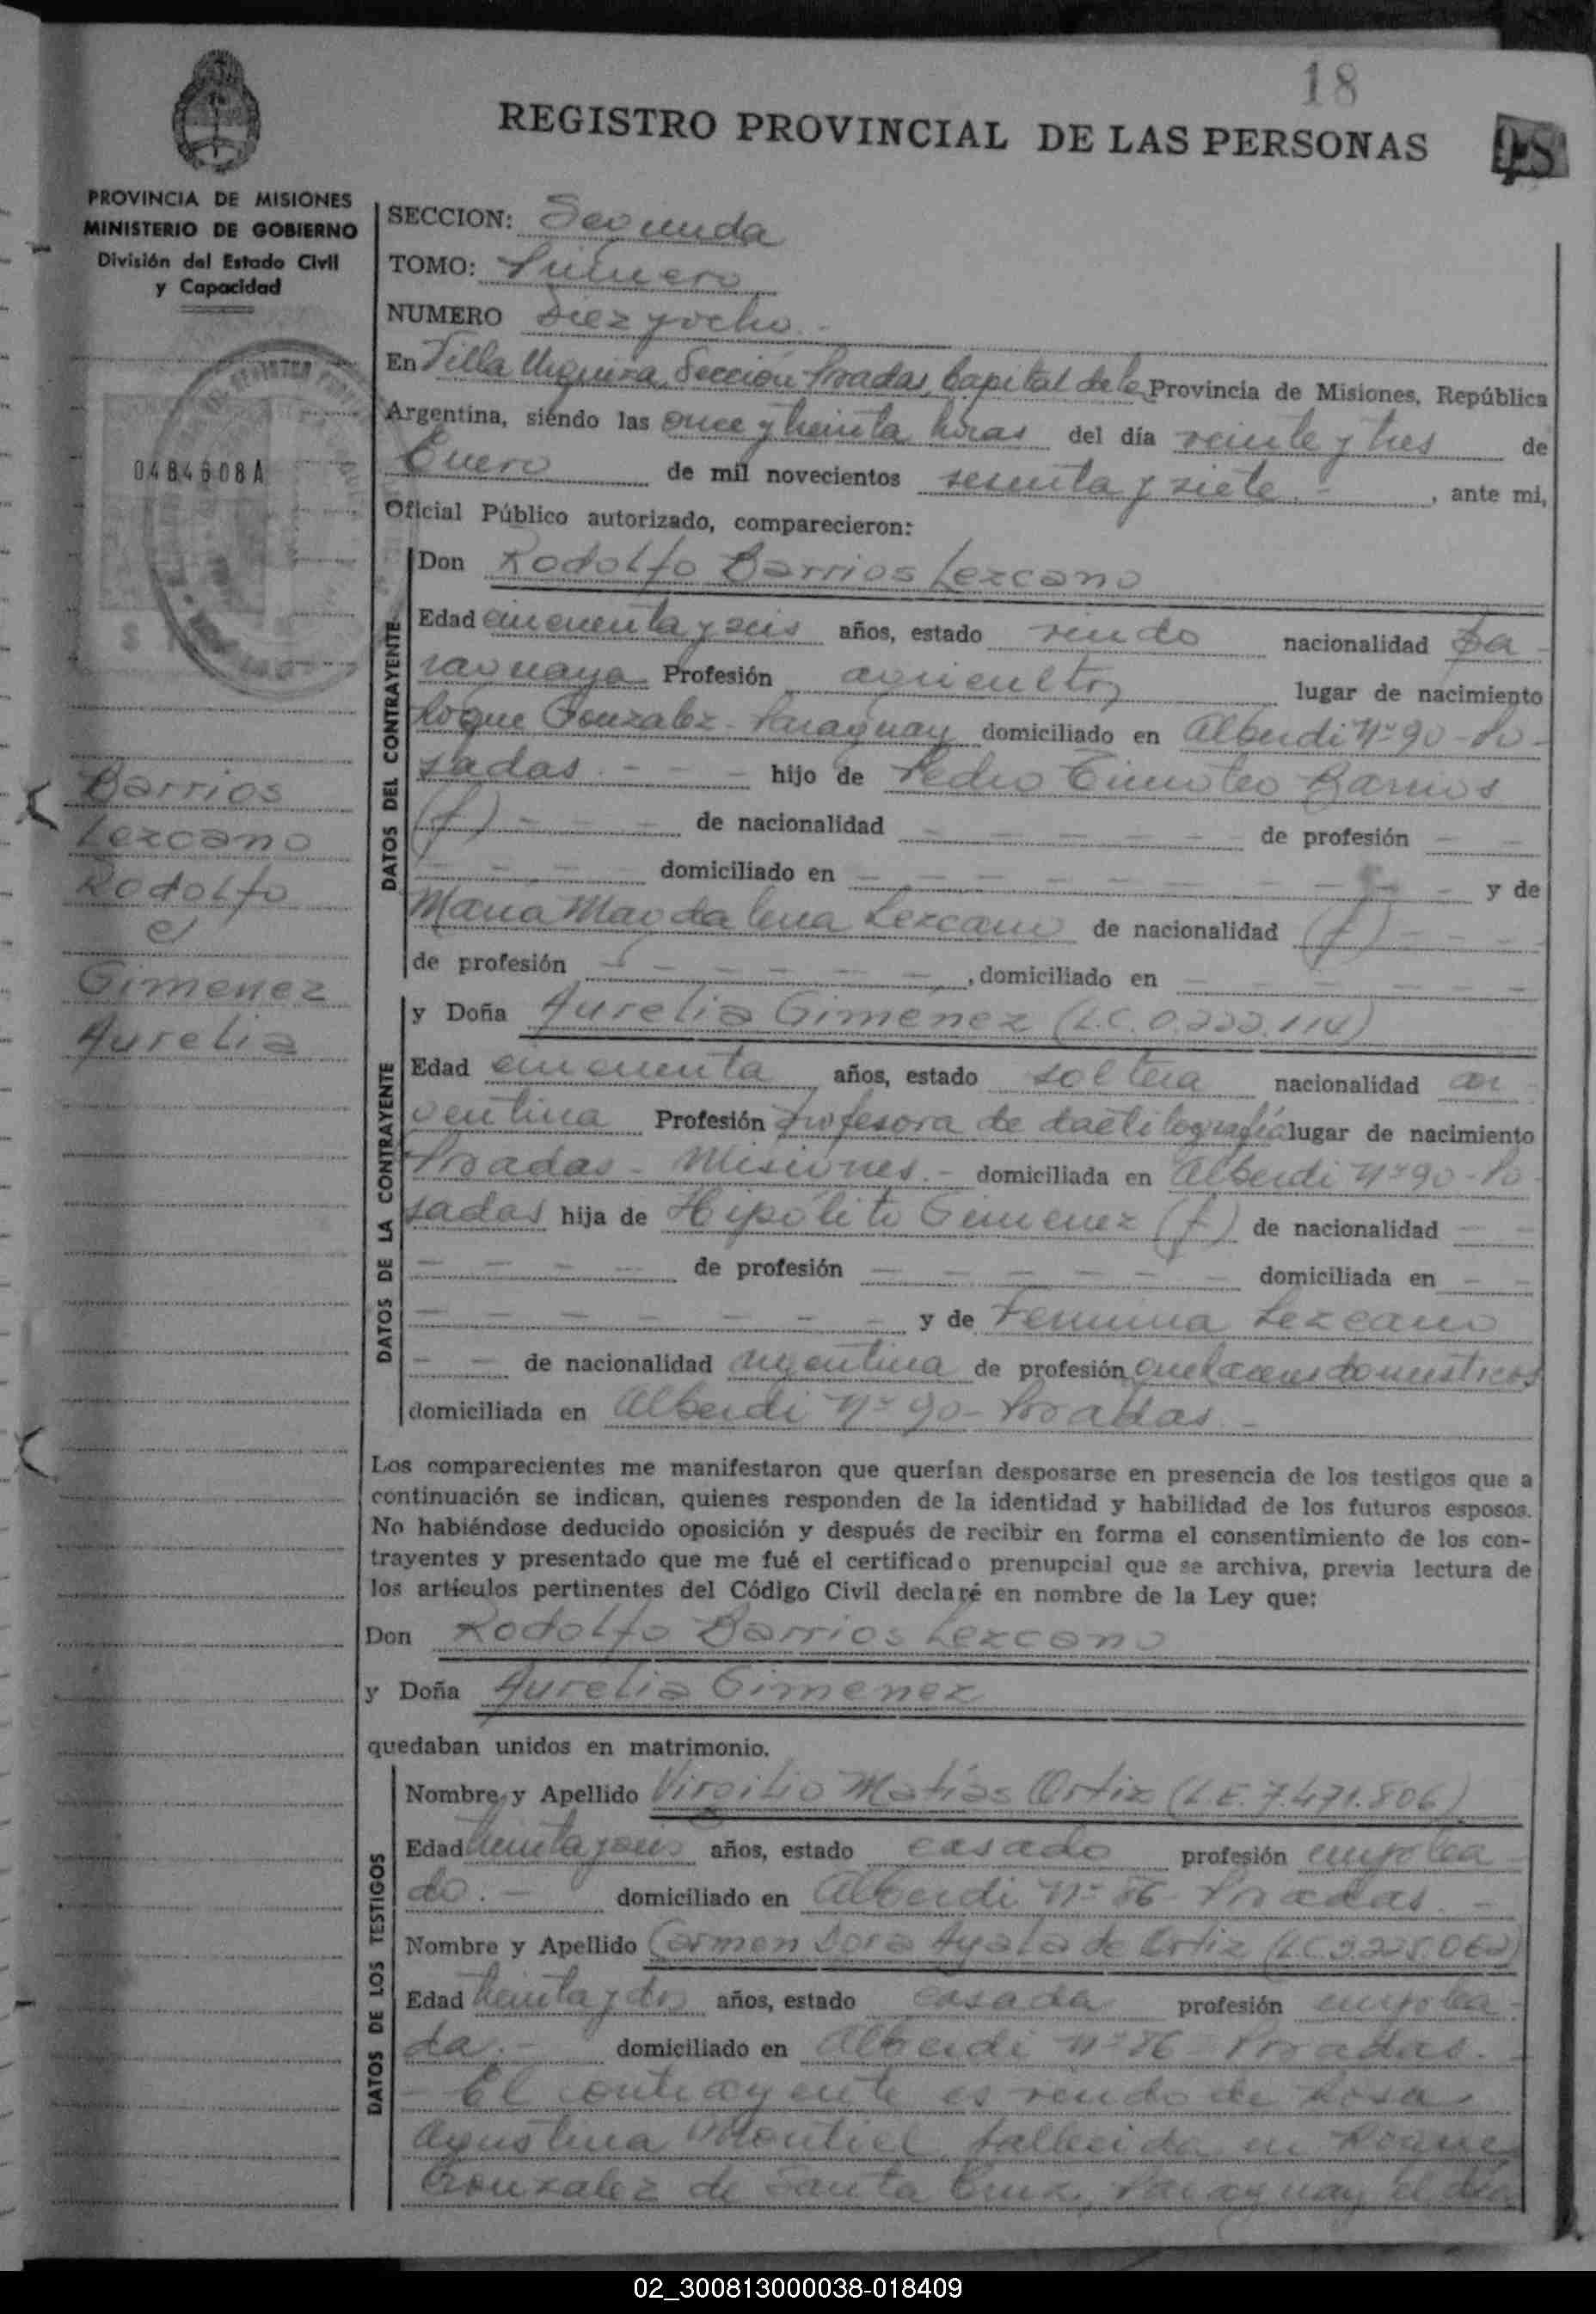 18
REGISTRO PROVINCIAL DE LAS PERSONAS
PROVINCIA DE MISIONES
MINISTERIO DE GOBIERNO
División del Estado Civil
y Capacidad
0484608A
Barrios
Lezcano
Rodolfo
c/
Gimenez
Aurelia
SECCION: Segunda
TOMO: Primero
NUMERO Diez y ocho.-
En Villa Urquiza, Sección Posadas, Capital de la Provincia de Misiones, República
Argentina, siendo las once y treinta horas del día veinte y tres de
Enero de mil novecientos sesenta y siete.-, ante mi,
Oficial Público autorizado, comparecieron:
DATOS DEL CONTRAYENTE
Don Rodolfo Barrios Lezcano
Edad cincuenta y seis años, estado viudo nacionalidad pa-
raguaya Profesión agricultor lugar de nacimiento
Roque Gonzalez - Paraguay domiciliado en Alberdi Nº 90 - Po-
sadas - - - hijo de Pedro Timoteo Barrios
(f) - - - de nacionalidad - - - de profesión - -
- - - domiciliado en - - - y de
Maria Magdalena Lezcano de nacionalidad (f) - - -
de profesión - - -, domiciliado en - - -
DATOS DE LA CONTRAYENTE
y Doña Aurelia Gimenez (L.C. 0.222.114)
Edad cincuenta años, estado soltera nacionalidad ar-
gentina Profesión profesora de dactilografía lugar de nacimiento
Posadas - Misiones.- domiciliada en Alberdi Nº 90 - Po-
sadas hija de Hipólito Gimenez (f) de nacionalidad - -
- - - de profesión - - - domiciliada en - -
- - - y de Fermina Lezcano
- - de nacionalidad argentina de profesión quehaceres domesticos
domiciliada en Alberdi Nº 90 - Posadas.-
Los comparecientes me manifestaron que querían desposarse en presencia de los testigos que a
continuación se indican, quienes responden de la identidad y habilidad de los futuros esposos.
No habiéndose deducido oposición y después de recibir en forma el consentimiento de los con-
trayentes y presentado que me fué el certificado prenupcial que se archiva, previa lectura de
los artículos pertinentes del Código Civil declaré en nombre de la Ley que:
Don Rodolfo Barrios Lezcano
y Doña Aurelia Gimenez
quedaban unidos en matrimonio.
DATOS DE LOS TESTIGOS
Nombre y Apellido Virgilio Matías Ortiz (L.E. 7.471.806)
Edad treinta y seis años, estado casado profesión emplea-
do.- domiciliado en Alberdi Nº 86 - Posadas.-
Nombre y Apellido Carmen Dora Ayala de Ortiz (L.C.
Edad treinta y dos años, estado casada profesión emplea-
da.- domiciliado en Alberdi Nº 86 - Posadas.-
- El contrayente es viudo de Rosa
Agustina Montiel fallecida en Roque
Gonzalez de Santa Cruz, Paraguay el dia
02_300813000038-018409